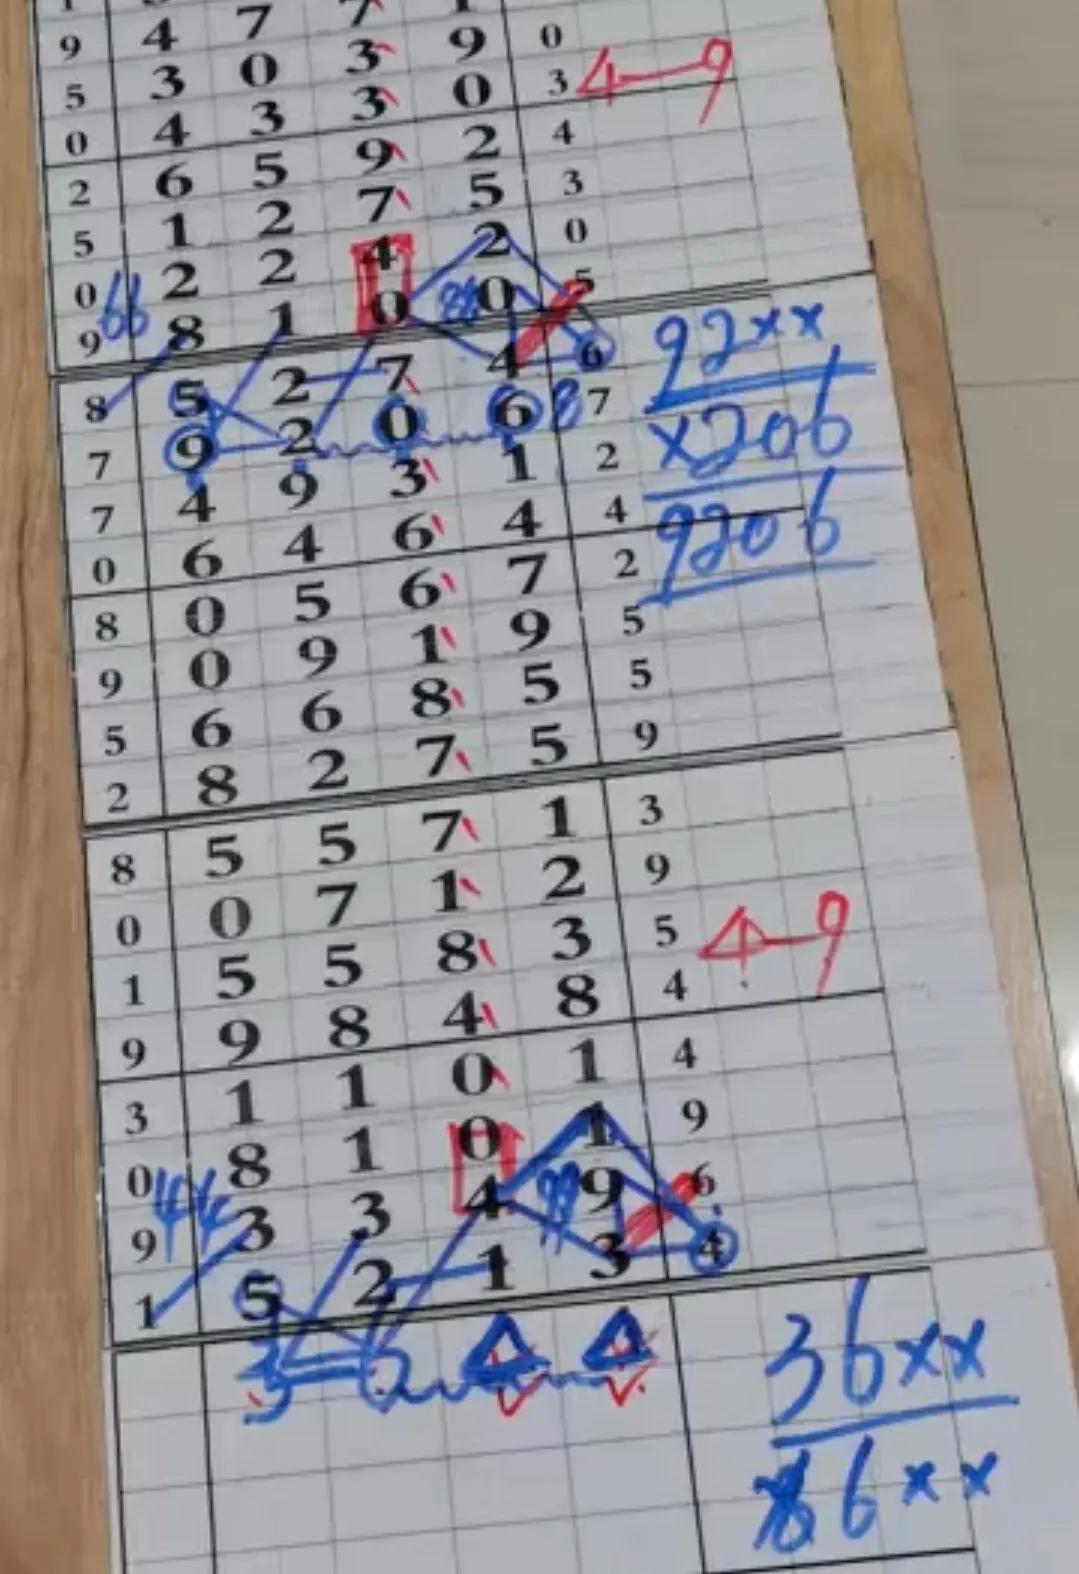 9 4 7 7 1
5 3 0 3 9 0
0 4 3 3 0 3 4—9
2 6 5 9 2 4
5 1 2 7 5 3
0 2 2 4 2 0
9 66 8 1 0 0 5
8 5 2 7 4 6 92xx
7 9 2 0 6 8 7 x206
7 4 9 3 1 2 9206
0 6 4 6 4 4
8 0 5 6 7 2
9 0 9 1 9 5
5 6 6 8 5 5
2 8 2 7 5 9
8 5 5 7 1 3
0 0 7 1 2 9
1 5 5 8 3 5 4—9
9 9 8 4 8 4
3 1 1 0 1 4
0 8 1 0 1 9
9 44 3 3 4 9 6
1 5 2 1 3 4
3 6 36xx
6xx